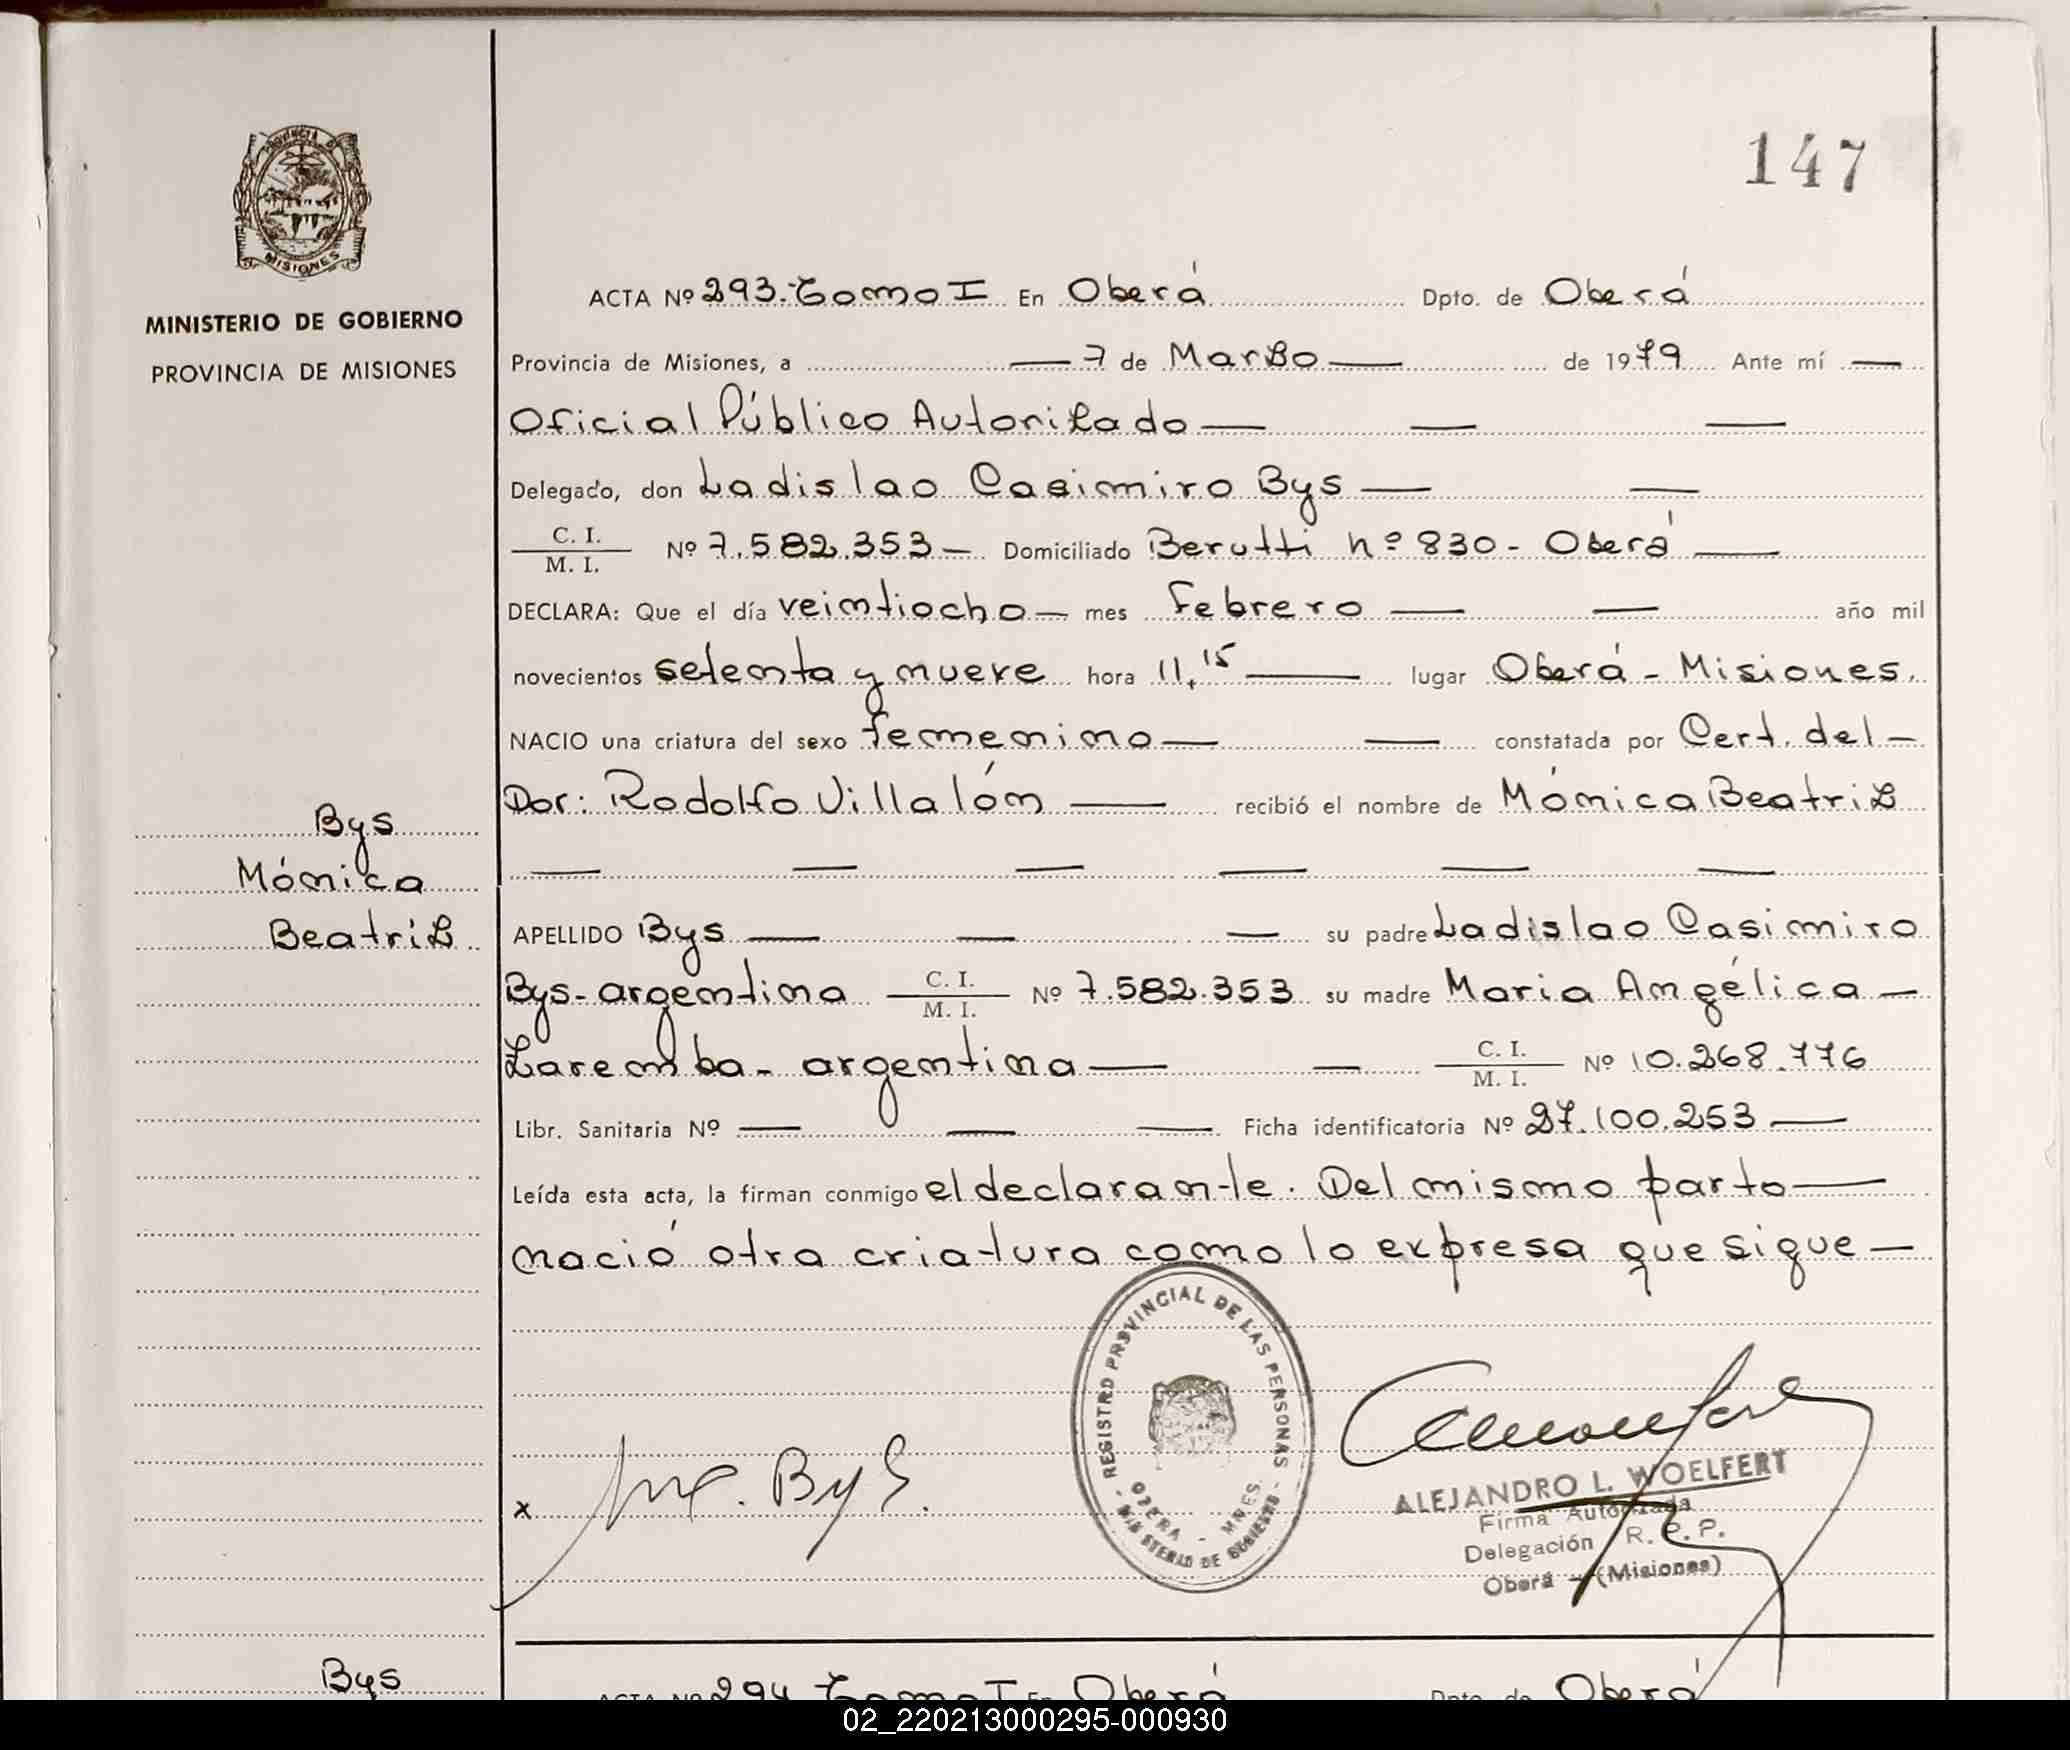 PROVINCIA DE
MISIONES
MINISTERIO DE GOBIERNO
PROVINCIA DE MISIONES
147
ACTA Nº 293.- Tomo I En Oberá Dpto. de Oberá
Provincia de Misiones, a — 7 de Marzo — de 1979 Ante mí —
Oficial Público Autorizado — — —
Delegado, don Ladislao Casimiro Bys — —
C. I.
M. I. Nº 7.582.353 — Domiciliado Berutti nº 830 - Oberá —
DECLARA: Que el día veintiocho — mes Febrero — — año mil
novecientos setenta y nueve hora 11,15 — lugar Oberá - Misiones.
NACIO una criatura del sexo femenino — — constatada por Cert. del —
Dor: Rodolfo Villalón — recibió el nombre de Mónica Beatriz
— — — — — —
Bys
Mónica
Beatriz
APELLIDO Bys — — — su padre Ladislao Casimiro
Bys - argentina C. I.
M. I. Nº 7.582.353 su madre Maria Angélica —
Zaremba - argentina — — C. I.
M. I. Nº 10.268.776
Libr. Sanitaria Nº — — — Ficha identificatoria Nº 27.100.253 —
Leída esta acta, la firman conmigo el declarante. Del mismo parto —
nació otra criatura como lo expresa que sigue —
REGISTRO PROVINCIAL DE LAS PERSONAS
OBERA - MNES.
- MINISTERIO DE GOBIERNO -
x Bys.
ALEJANDRO L. WOELFERT
Firma Autorizada
Delegación R. P. P.
Oberá - (Misiones)
Bys
ACTA Nº 294 Tomo I En Oberá Dpto. de Oberá
02_220213000295-000930